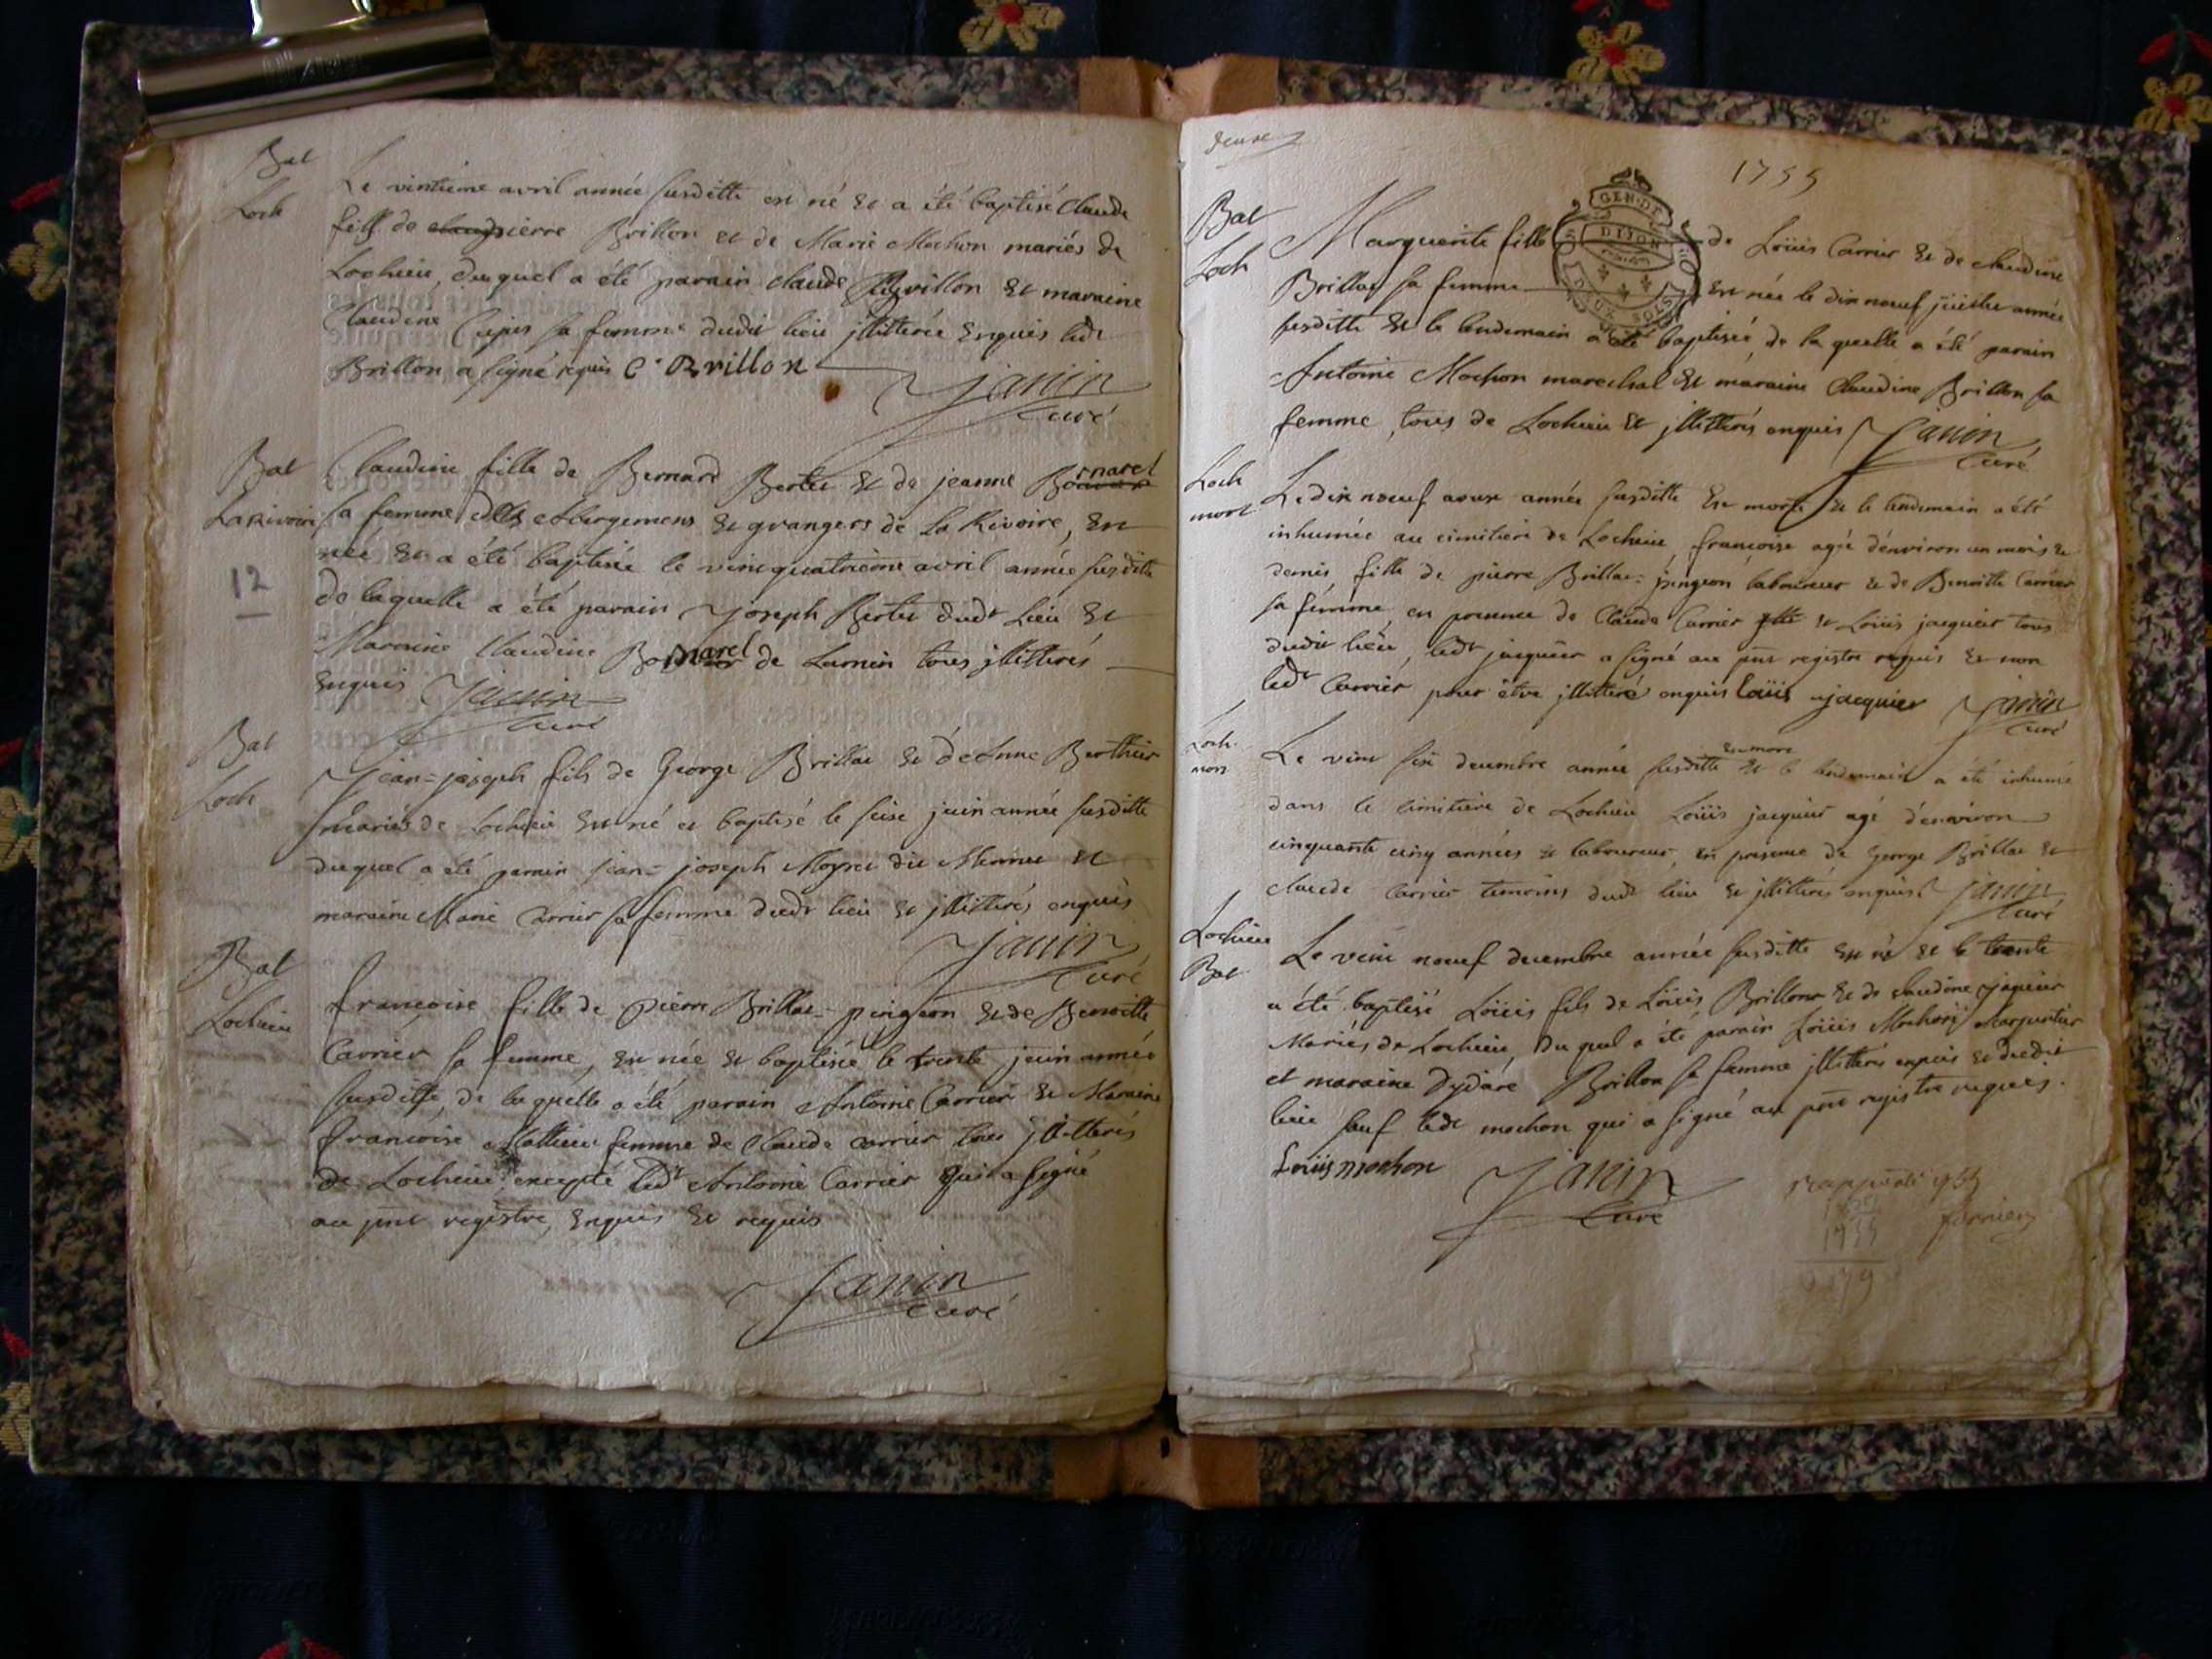 Bat
Loch
Le vintieme avril année susditte est né et a été baptisé Claude
fils de pierre Brillon et de Marie Mochon mariés de
Lochieu, duquel a été parain claude Brillon et maraine
Claudine sa femme dudit lieu jllitérée enquis ledt
Brillon a signé requis C. Brillon
Janin
curé
Bat
La Rivoire
12
Claudine fille de Bernard Bertet et de jeanne Bornarel
sa femme et grangers de La Rivoire, est
née et a été baptisée le vint quatrieme avril année susditte
de laquelle a été parain joseph Bertet dudt Lieu et
Maraine Claudine Bornarel de Lumin tous jllitterés
enquis Janin
curé
Bat
Loch
jean=joseph fils de George Brillat et d'Anne Berthier
mariés de Lochieu est né et baptisé le seise juin année susditte
duquel a été parain jean=joseph Moyret dit et
maraine Marie Carrier sa femme dudt lieu et jllitterés enquis
Janin
curé
Bat
Lochieu
francoise fille de pierre Brillat= pingeon et de Benoitte
Carrier sa femme, est née et baptisée le trente juin année
susditte, de laquelle a été parain Antoine Carrier et Maraine
francoise Mathieu femme de Claude carrier tous jllitterés
de Lochieu, excepté ledt Antoine Carrier qui a signé
au pnt registre, enquis et requis
Janin
curé
deuxe
1755
Bat
Loch
GEN. DE
DIJON
DEUX SOLS
Marguerite fille de Loüis Carrier et de claudine
Brillat sa femme est née le dix neuf juillet année
susditte et le lendemain a été baptisée, de la quelle a été parain
Antoine Mochon marechal et maraine Claudine Brillon sa
femme, tous de Lochieu et jllitterés enquis Janin
curé
Loch
mort
Le dix neuf aoust année susditte est morte et le lendemain a été
inhumée au cimitiere de Lochieu, francoise agée d'environ un mois et
demis, fille de pierre Brillat= pingeon laboureur et de Benoitte Carrier
sa femme, en presence de Claude Carrier et Loüis jacquier tous
dudit lieu, ledt jacquier a signé au pnt registre requis et non
ledt Carrier pour être jllitteré enquis loüis jacquier Janin
curé
Loch
mort
est mort
Le vint six decembre année susditte et le lendemain a été inhumé
dans le cimitiere de Lochieu Loüis jacquier agé d'environ
cinquante cinq années et laboureur, en presence de George Brillat et
claude Carrier temoins dudt lieu et jllitterés enquis. Janin
curé
Lochieu
Bat
Le vint neuf decembre année susditte est né et le trente
a été baptisé Loüis fils de Loüis Brillon et de claudine jaquier
Mariés de Lochieu, du quel a été parain Loüis Mochon charpentier
et maraine Dydare Brillon sa femme jllitterée enquis et dudit
lieu sauf ledt mochon qui a signé au pnt registre requis.
Loüis mochon Janin
curé
1755